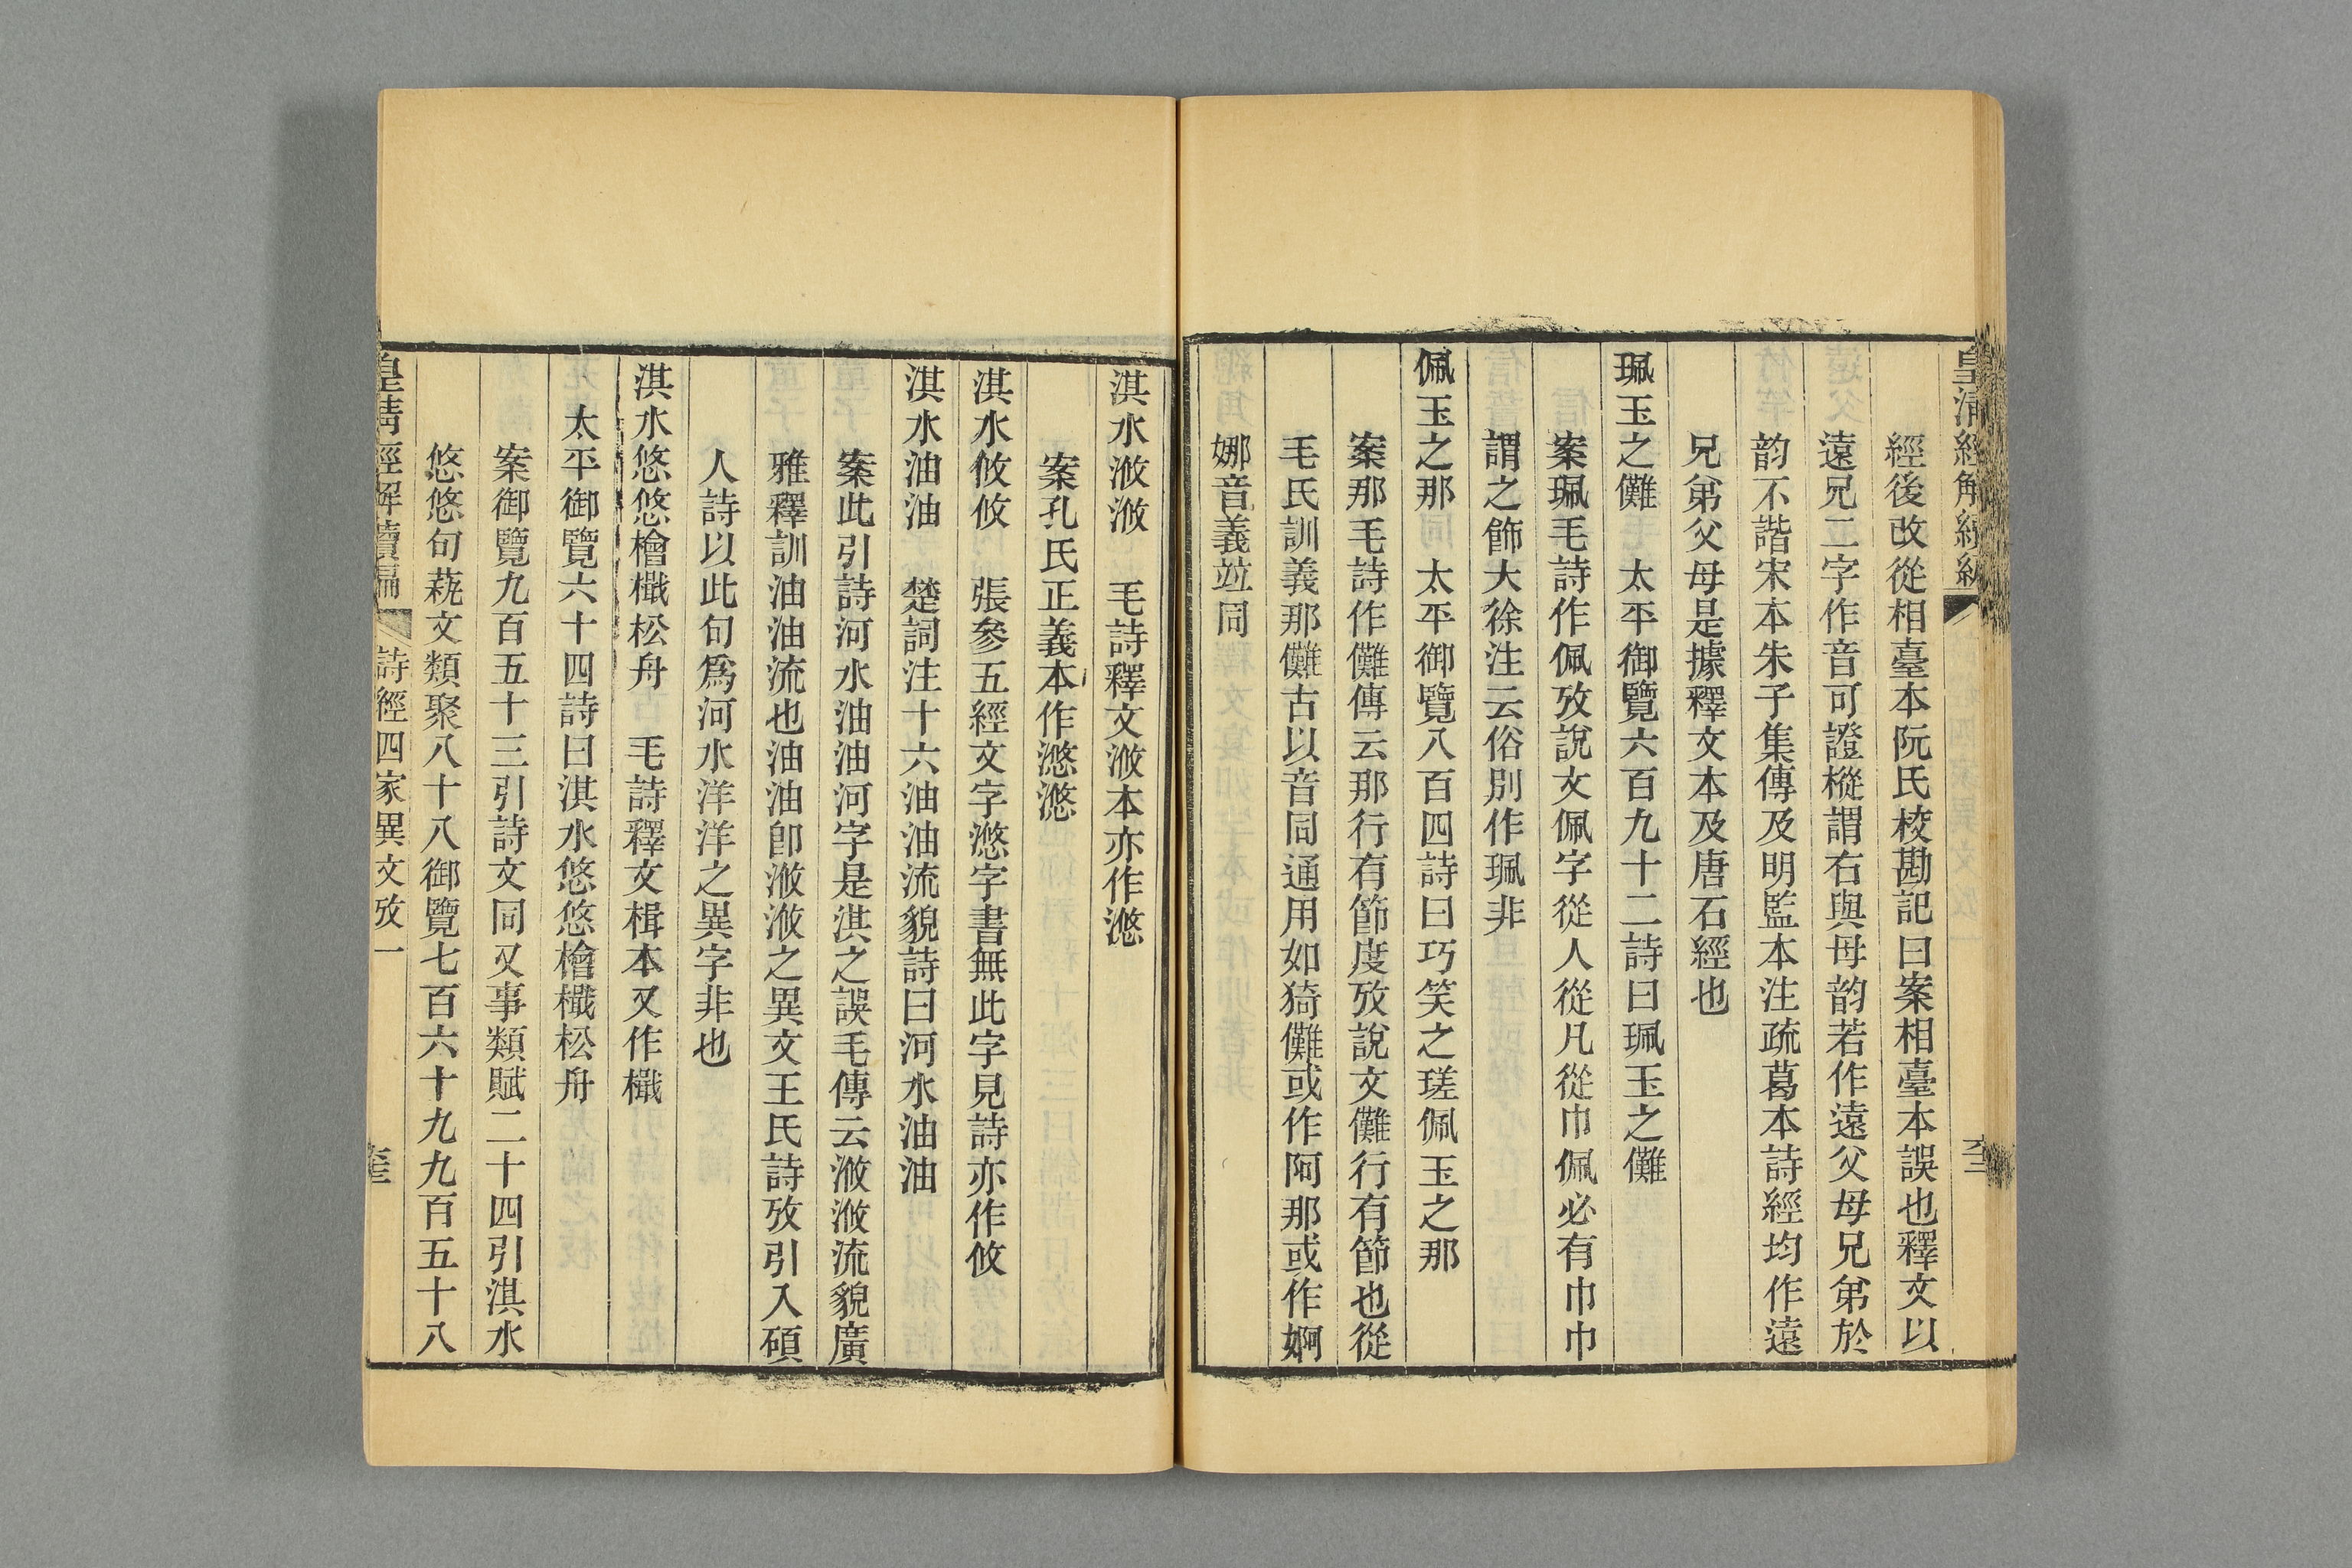 經後改從相臺本阮氏校勘記曰案相臺本誤也釋文以
遠兄二字作音可證樅謂右與母韵若作遠父母兄弟於
韵不諧宋本朱子集傳及明監本注疏葛本詩經均作遠
兄弟父母是據釋文本及唐石經也
珮玉之儺　太平御覽六百九十二詩曰珮玉之儺
案珮毛詩作佩攷說文佩字從人從凡從巾佩必有巾巾
謂之飾大徐注云俗別作珮非
佩玉之那　太平御覽八百四詩曰巧笑之瑳佩玉之那
案那毛詩作儺傳云那行有節度攷說文儺行有節也從
毛氏訓義那儺古以音同通用如猗儺或作阿那或作婀
娜音義竝同
淇水滺滺　毛詩釋文滺本亦作濦
案孔氏正義本作濦濦
淇水攸攸　張參五經文字濦字書無此字見詩亦作攸
淇水油油　楚詞注十六油油流貌詩曰河水油油
案此引詩河水油油河字是淇之誤毛傳云滺滺流貌廣
雅釋訓油油流也油油卽滺滺之異文王氏詩攷引入碩
人詩以此句爲河水洋洋之異字非也
淇水悠悠檜檝松舟　毛詩釋文楫本又作檝
太平御覽六十四詩曰淇水悠悠檜檝松舟
案御覽九百五十三引詩文同又事類賦二十四引淇水
悠悠句蓺文類聚八十八御覽七百六十九九百五十八
皇清經解續編　詩經四家異文攷一